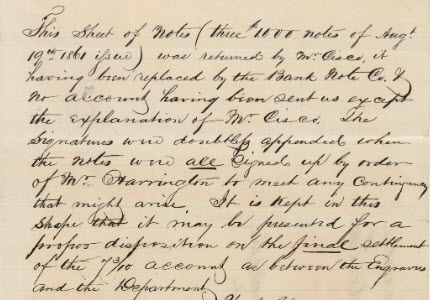 This Sheet of Notes (three $1000 notes of Augt
19th 1861 issue) was returned by Mr. Cisco, it
having been replaced by the Bank Note Co. &
no account having been sent us except
the explanation of Mr. Cisco. The
Signatures were doubtless appended when
the Notes were all signed up by order
of Mr. Harrington to meet any contingency
that might arise. It is kept in this
shape that it may be presented for a
proper disposition on the final settlement
of the 7 3/10 account, as between the Engravers
and the Department